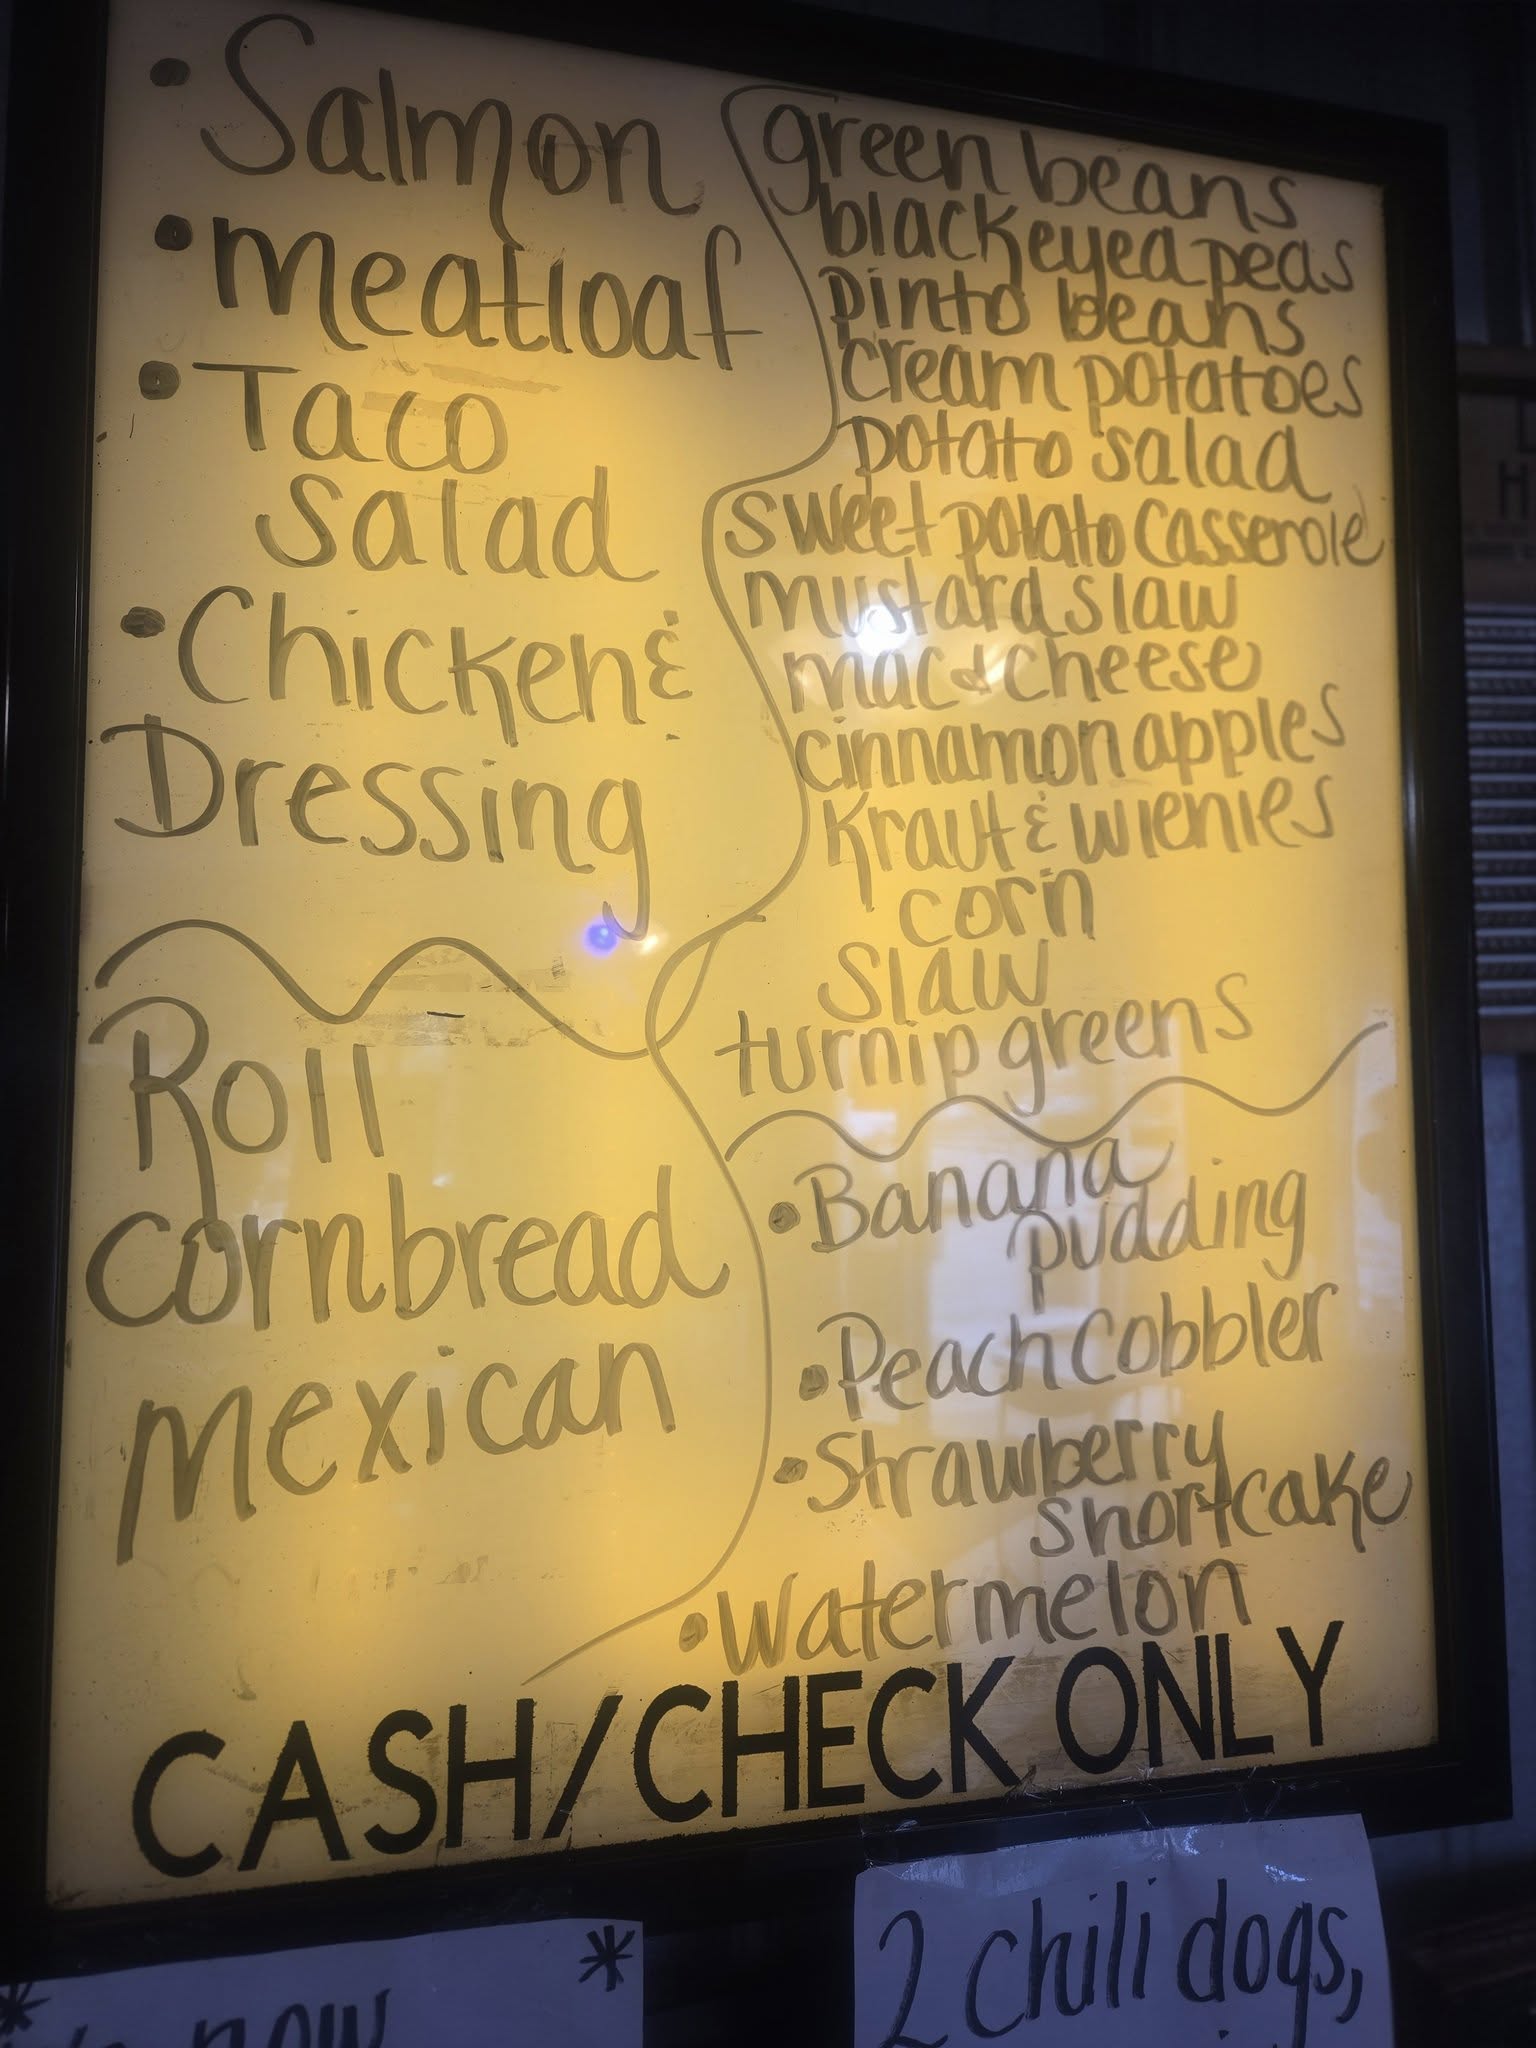 • Salmon
• Meatloaf
• Taco
Salad
• Chicken &
Dressing
Roll
Cornbread
Mexican
green beans
blackeyed peas
pinto beans
cream potatoes
potato salad
sweet potato casserole
mustard slaw
mac & cheese
cinnamon apples
Kraut & wienies
corn
slaw
turnip greens
• Banana
pudding
• Peach Cobbler
• Strawberry
shortcake
• Watermelon
CASH/CHECK ONLY
* *
now
2 chili dogs,